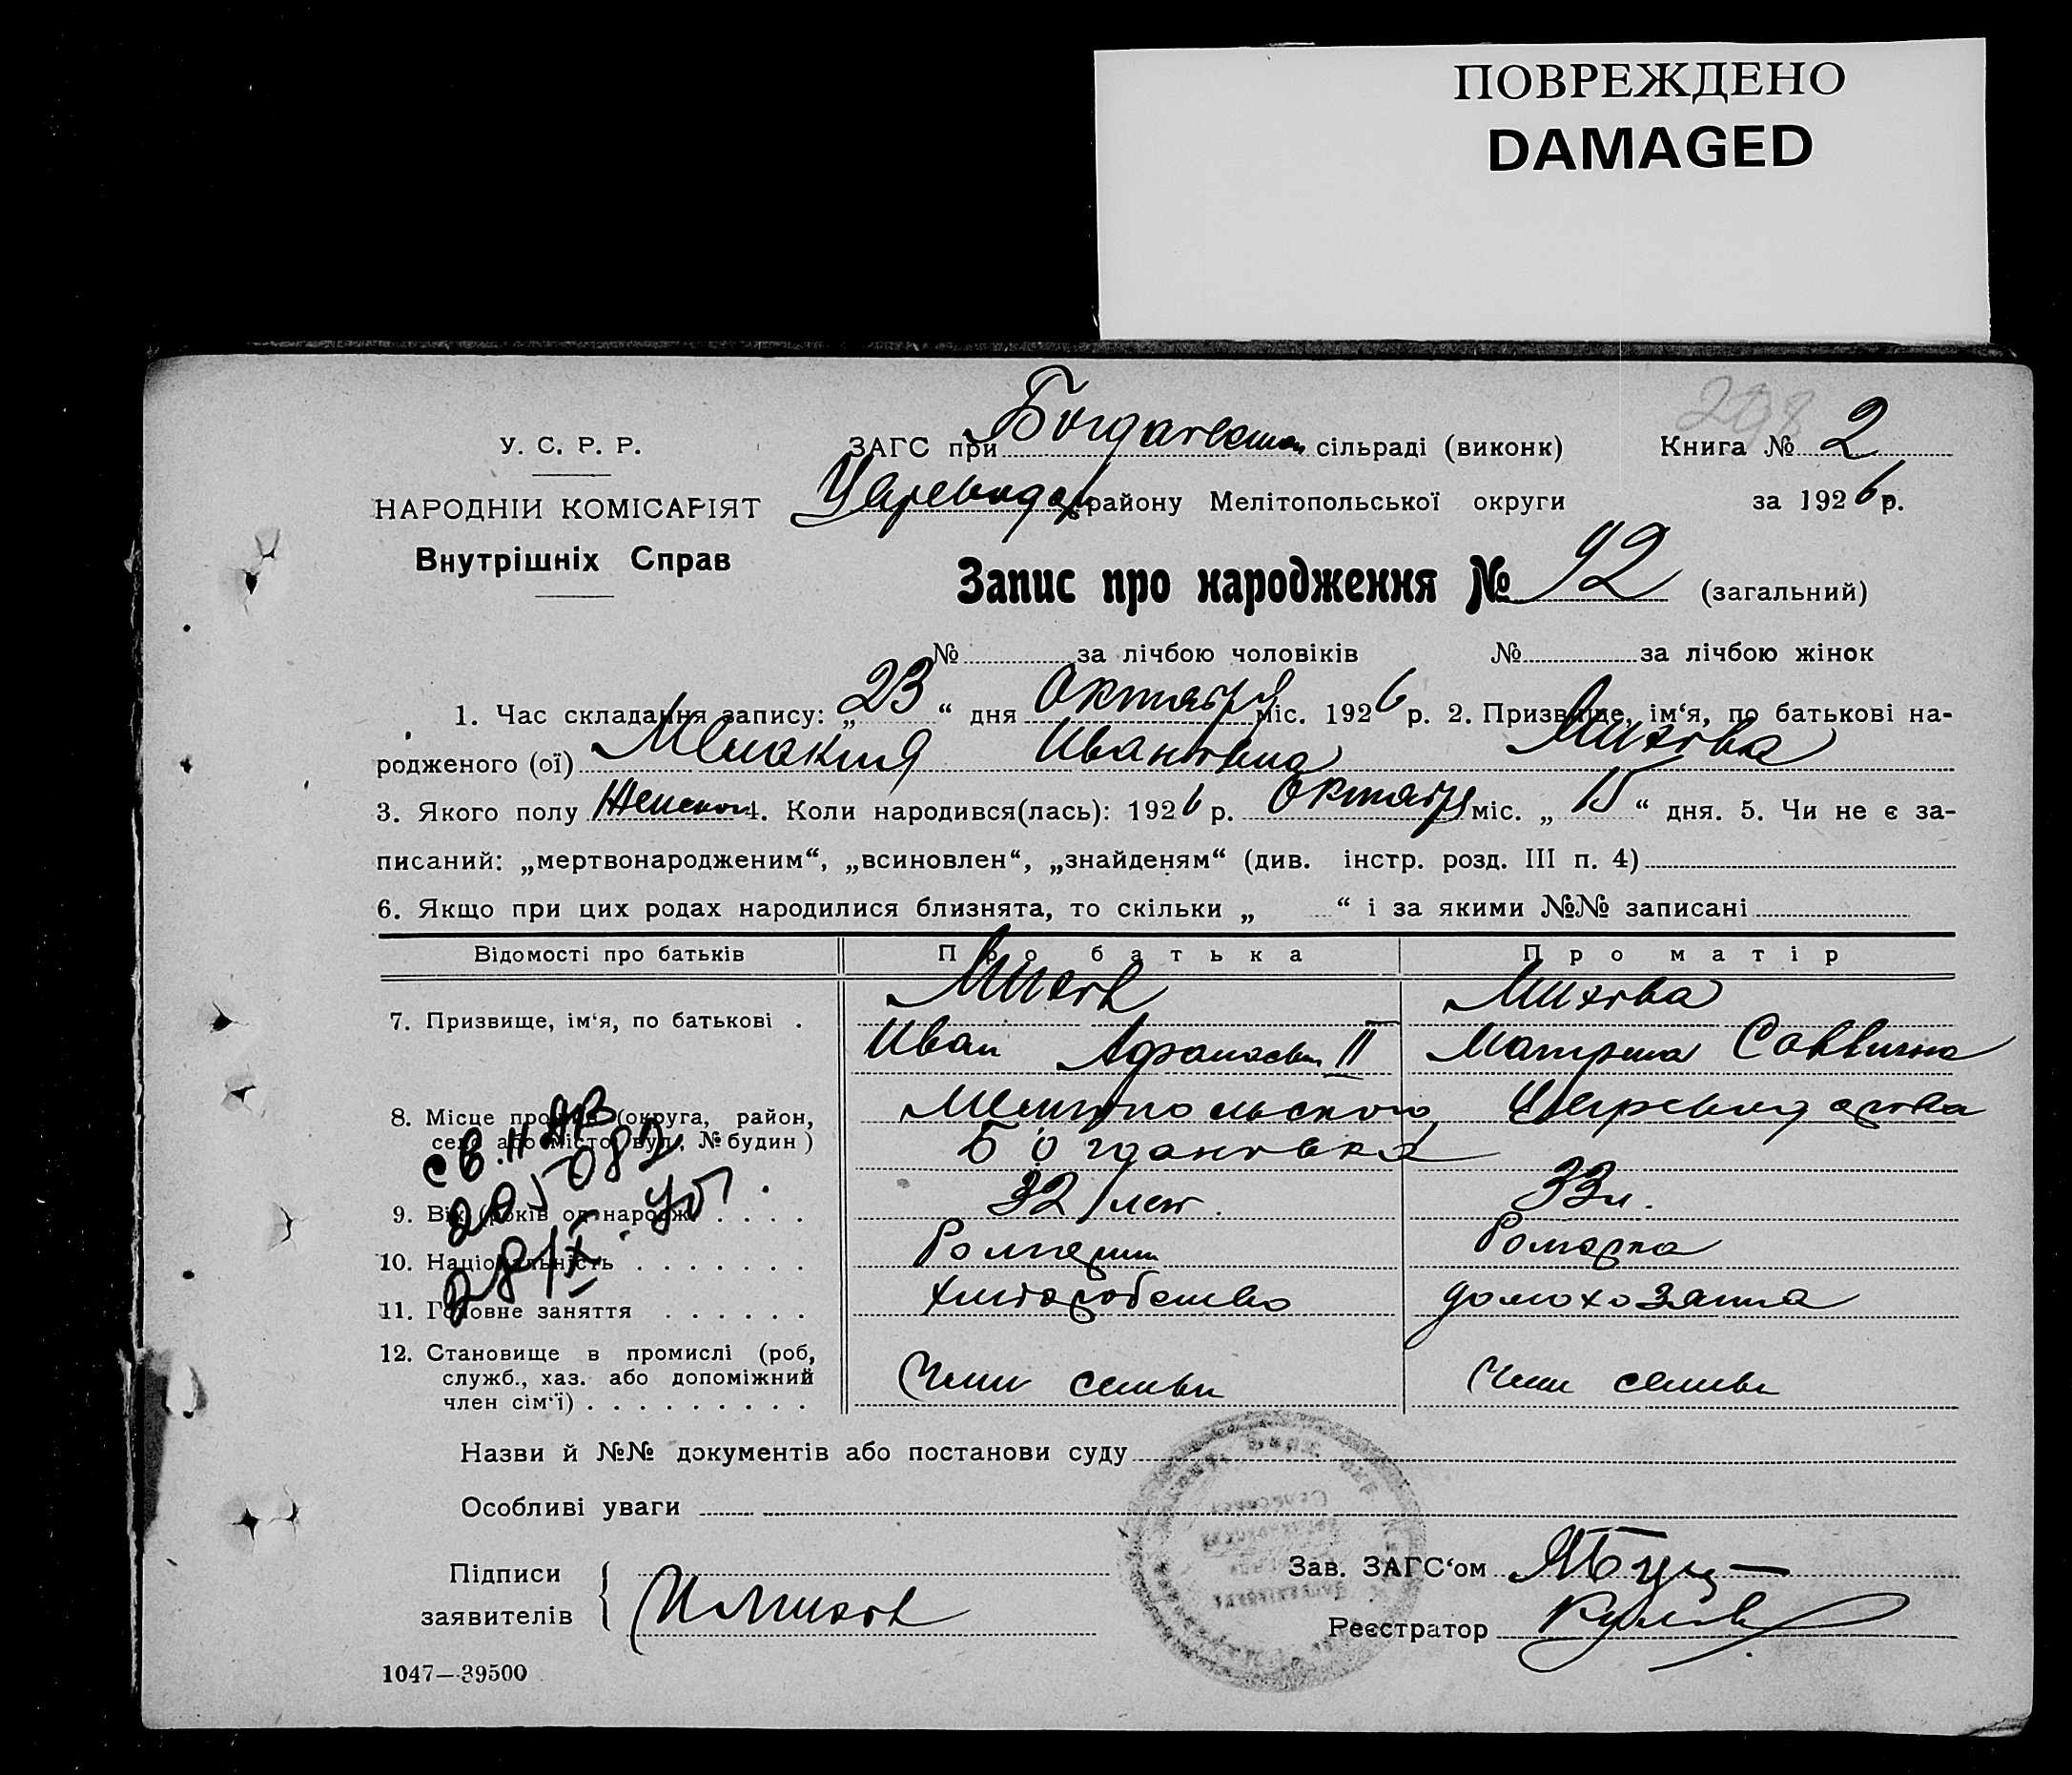 ПОВРЕЖДЕНО
DAMAGED
298
У. С. Р. Р.
НАРОДНІЙ КОМІСАРІЯТ
Внутрішніх Справ
ЗАГС при сільраді (виконк) Книга № 2
району Мелітопольської округи за 1926 р.
Запис про народження № 92 (загальний)
№ за лічбою чоловіків № за лічбою жінок
1. Час складання запису: „23“ дня Октября міс. 1926 р. 2. Призвище, ім‘я, по батькові на-
родженого (ої) Ивановна Михова
3. Якого полу Женского 4. Коли народився(лась): 1926 р. Октября міс. „15“ дня. 5. Чи не є за-
писаний: „мертвонародженим“, „всиновлен“, „знайденям“ (див. інстр. розд. III п. 4)
6. Якщо при цих родах народилися близнята, то скільки „ “ і за якими №№ записані
Відомості про батьків Про батька Про матір
7. Призвище, ім‘я, по батькові . Михов Михова
Иван Афанасьев II Матрена Саввична
8. Місце прожив. (округа, район, Мелитопольского
село або місто, вул., № будин) Богдановка
9. Вік (років од народж) . . . . 32 лет. 33 л.
10. Національність . . . . . . .
11. Головне заняття . . . . . . домохозяйка
12. Становище в промислі (роб,
служб., хаз. або допоміжний Член семьи Член семьи
член сім‘ї) . . . . . . . . .
Назви й №№ документів або постанови суду
Особливі уваги
Підписи Зав. ЗАГС‘ом
заявителів И Михов Реєстратор
1047—39500